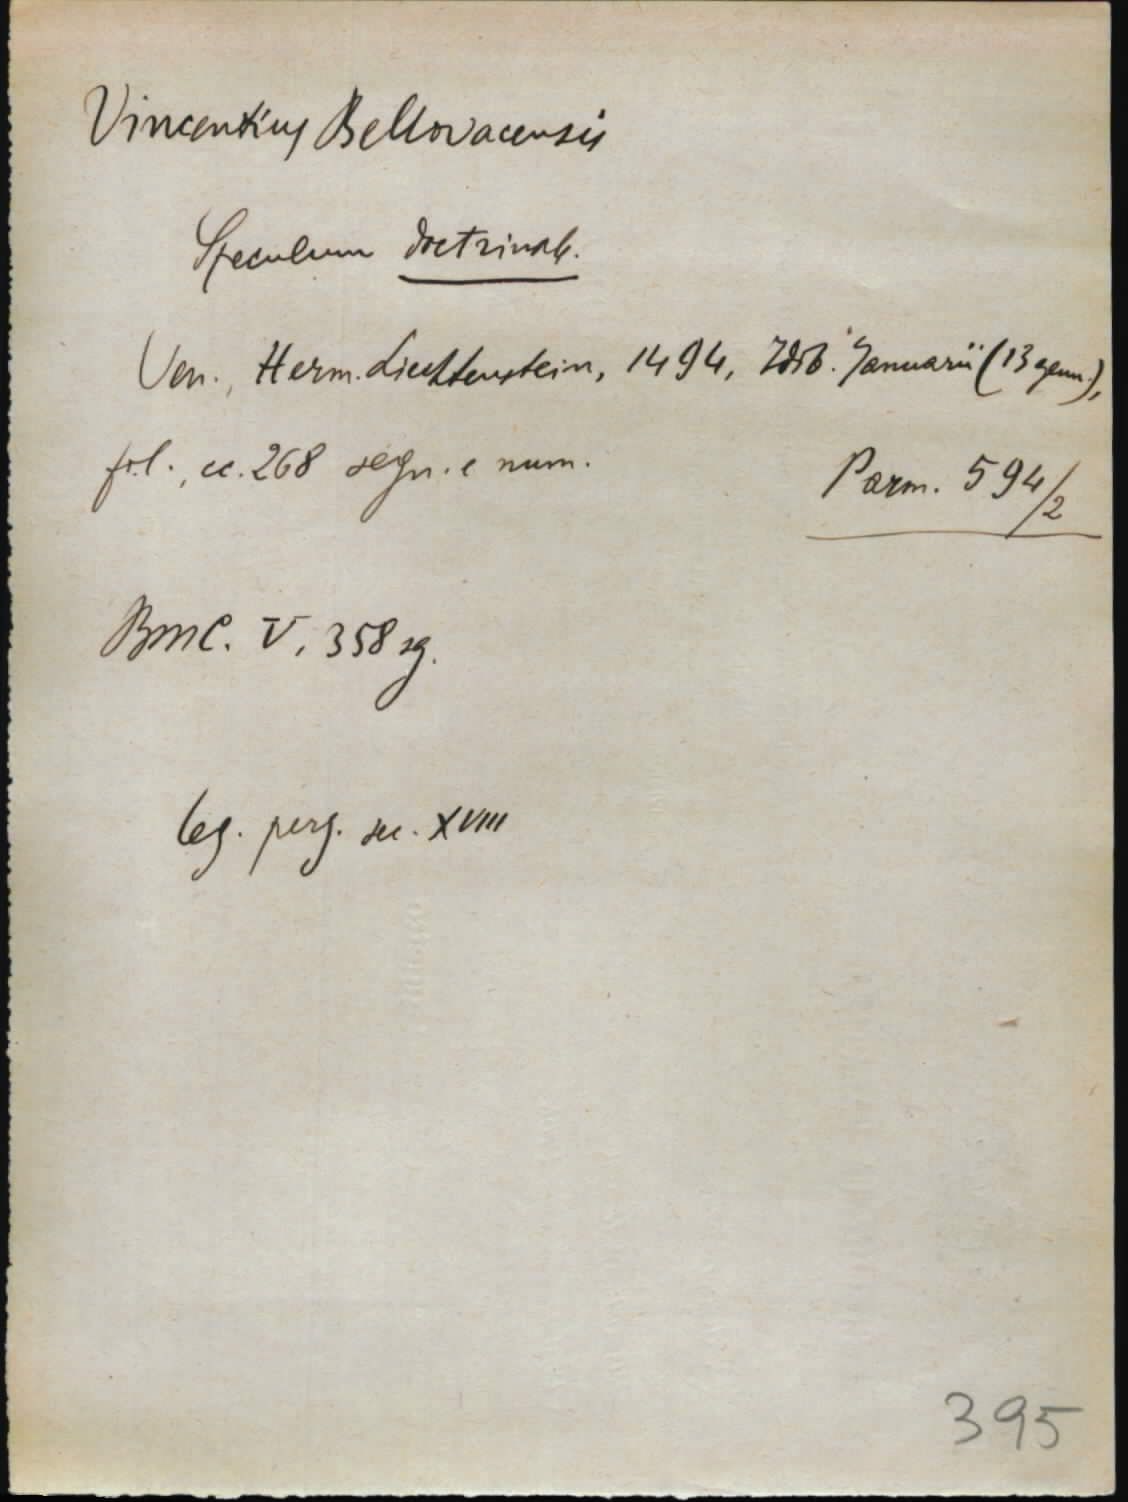 Vincentius Bellovacensis
Speculum doctrinale.
Ven., Herm. Liechtenstein, 1494, Idib. Januarii (13 genn.),
fol., cc. 268 segn. e num.
Parm. 594/2
BMC. V, 358 sg.
leg. perg. sec. XVIII
395